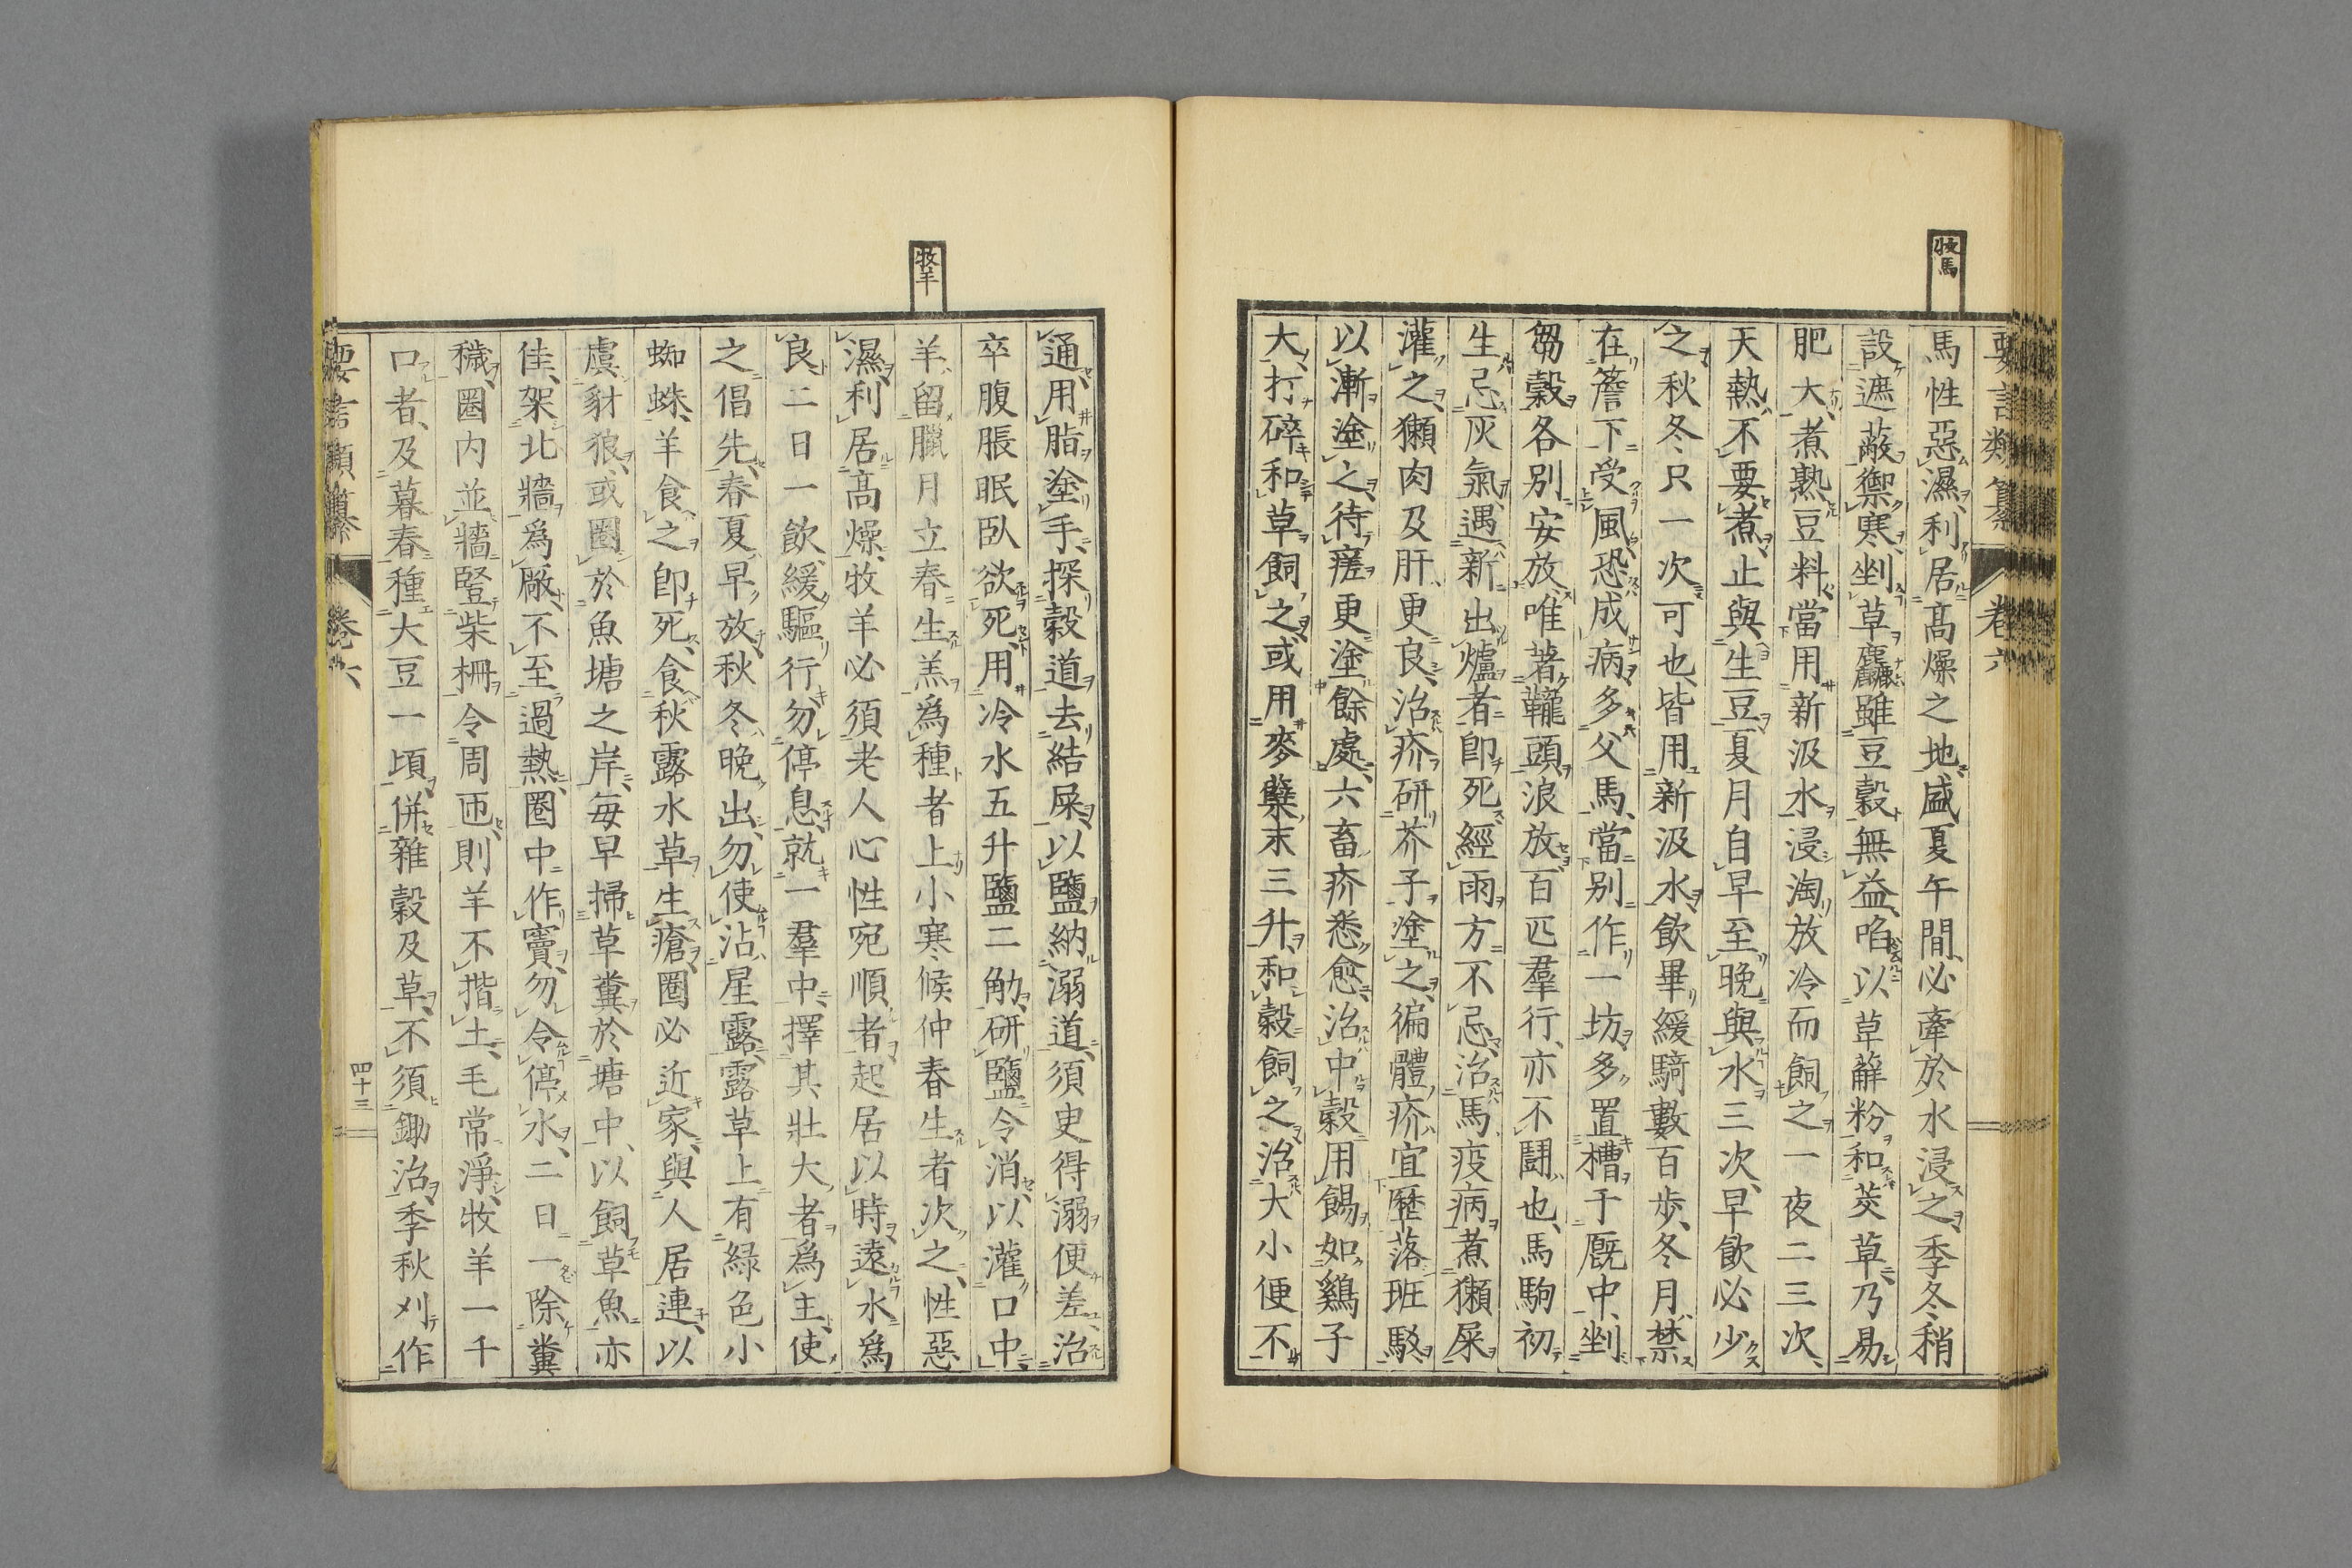 牧馬
馬性惡濕利居高燥之地盛夏午間必牽於水浸之季冬稍
設遮蔽禦寒剉草麤雖豆穀無益啗以草薢粉和茭草乃易
肥大煮熟豆料當用新汲水浸淘放冷而飼之一夜二三次
天熱不要煮止與生豆夏月自早至晚與水三次早飲必少
之秋冬只一次可也皆用新汲水飲畢緩騎數百步冬月禁
在簷下受風恐成病多父馬當別作一坊多置槽于厩中剉
芻穀各別安放唯著鞴頭浪放百匹羣行亦不鬪也馬駒初
生忌灰氣遇新出爐者即死經雨方不忌治馬疫病煮獺屎
灌之獺肉及肝更良治疥研芥子塗之徧體疥宜歷落班駁
以漸塗之待瘥更塗餘處六畜疥悉愈治中穀用餳如鷄子
大打碎和草飼之或用麥蘖末三升和穀飼之治大小便不
牧羊
通用脂塗手探穀道去結屎以鹽納溺道須史得溺便差治
卒腹脹眠臥欲死用冷水五升鹽二觔研鹽令消以灌口中
羊留臘月立春生羔爲種者上小寒候仲春生者次之性惡
濕利居高燥牧羊必須老人心性宛順者起居以時遠水爲
良二日一飲緩驅行勿停息就一羣中擇其壯大者爲主使
之倡先春夏早放秋冬晚出勿使沾星露露草上有緑色小
蜘蛛羊食之即死食秋露水草生瘡圈必近家與人居連以
虞豺狼或圈於魚塘之岸每早掃草糞於塘中以飼草魚亦
佳架北牆爲廠不至過熱圈中作竇勿令停水二日一除糞
穢圈内並牆豎柴柵令周匝則羊不揩土毛常淨牧羊一千
口者及暮春種大豆一頃併雜穀及草不須鋤治季秋刈作
卷六
四十三